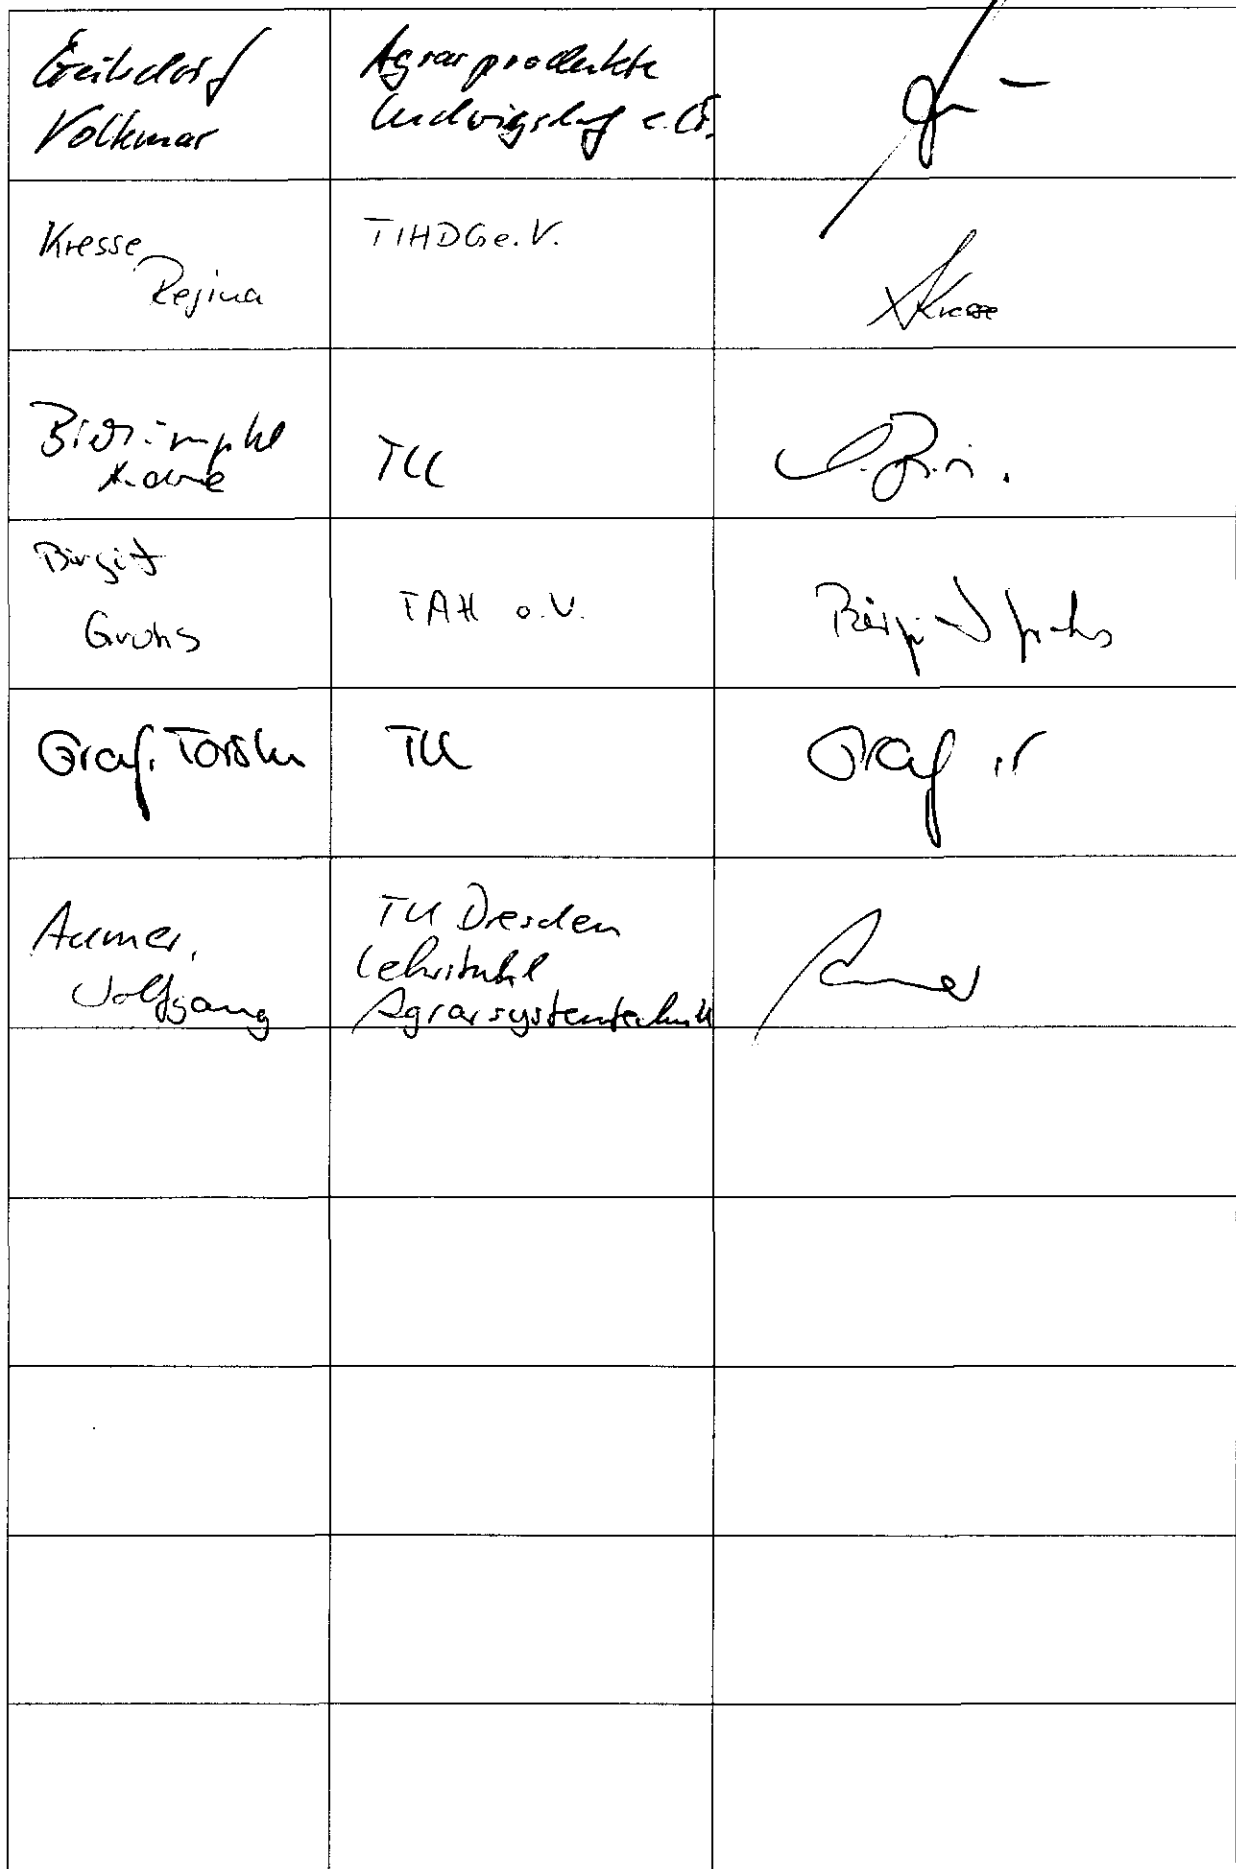 Volkmar
Agrarprodukte
Ludwigshof e.G.
Kresse
Regina
TIHDG e.V.
Kresse
TLL
Birgit
Grohs
TAH e.V.
Birgit Grohs
Graf, Torsten
TLL
Graf
Aumer,
Wolfgang
TU Dresden
Lehrstuhl
Agrarsystemtechnik
Aumer